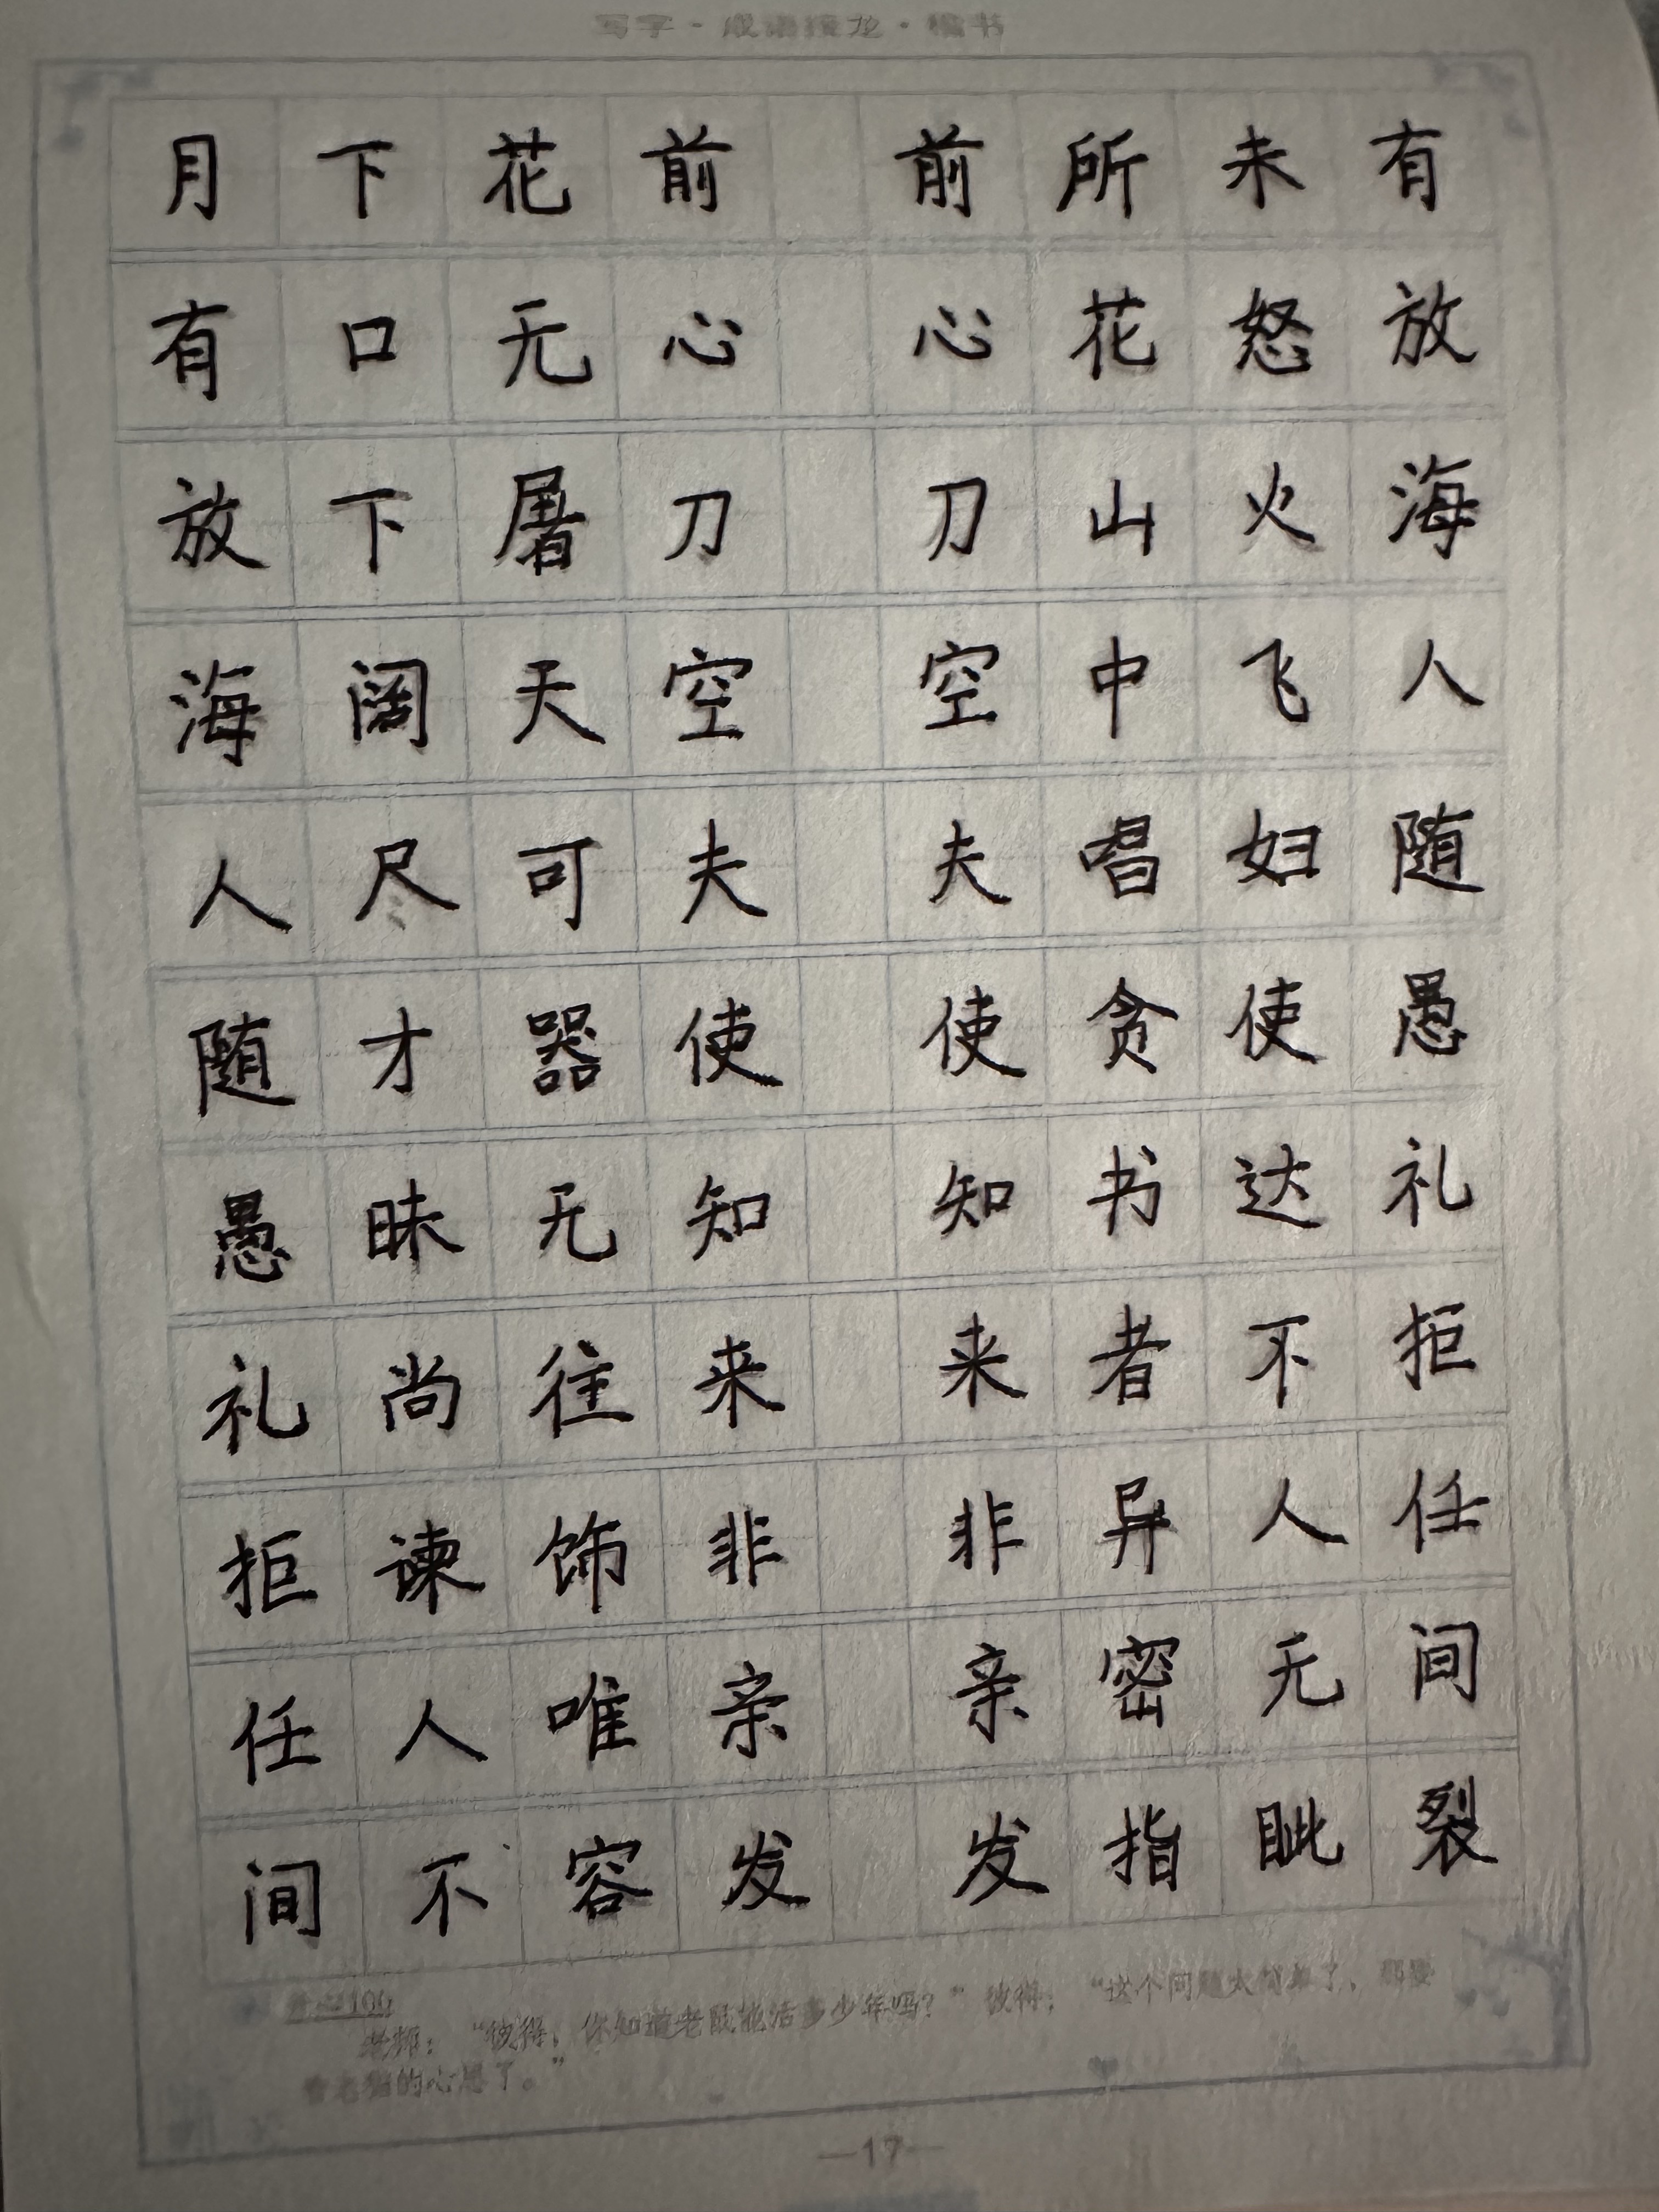 写字·成语接龙·楷书
月下花前 前所未有
有口无心 心花怒放
放下屠刀 刀山火海
海阔天空 空中飞人
人尽可夫 夫唱妇随
随才器使 使贪使愚
愚昧无知 知书达礼
礼尚往来 来者不拒
拒谏饰非 非异人任
任人唯亲 亲密无间
间不容发 发指眦裂
开心100
老师：“彼得，你知道老鼠能活多少年吗？”彼得：“这个问题太简单了，那要
看老猫的心思了。”
—17—